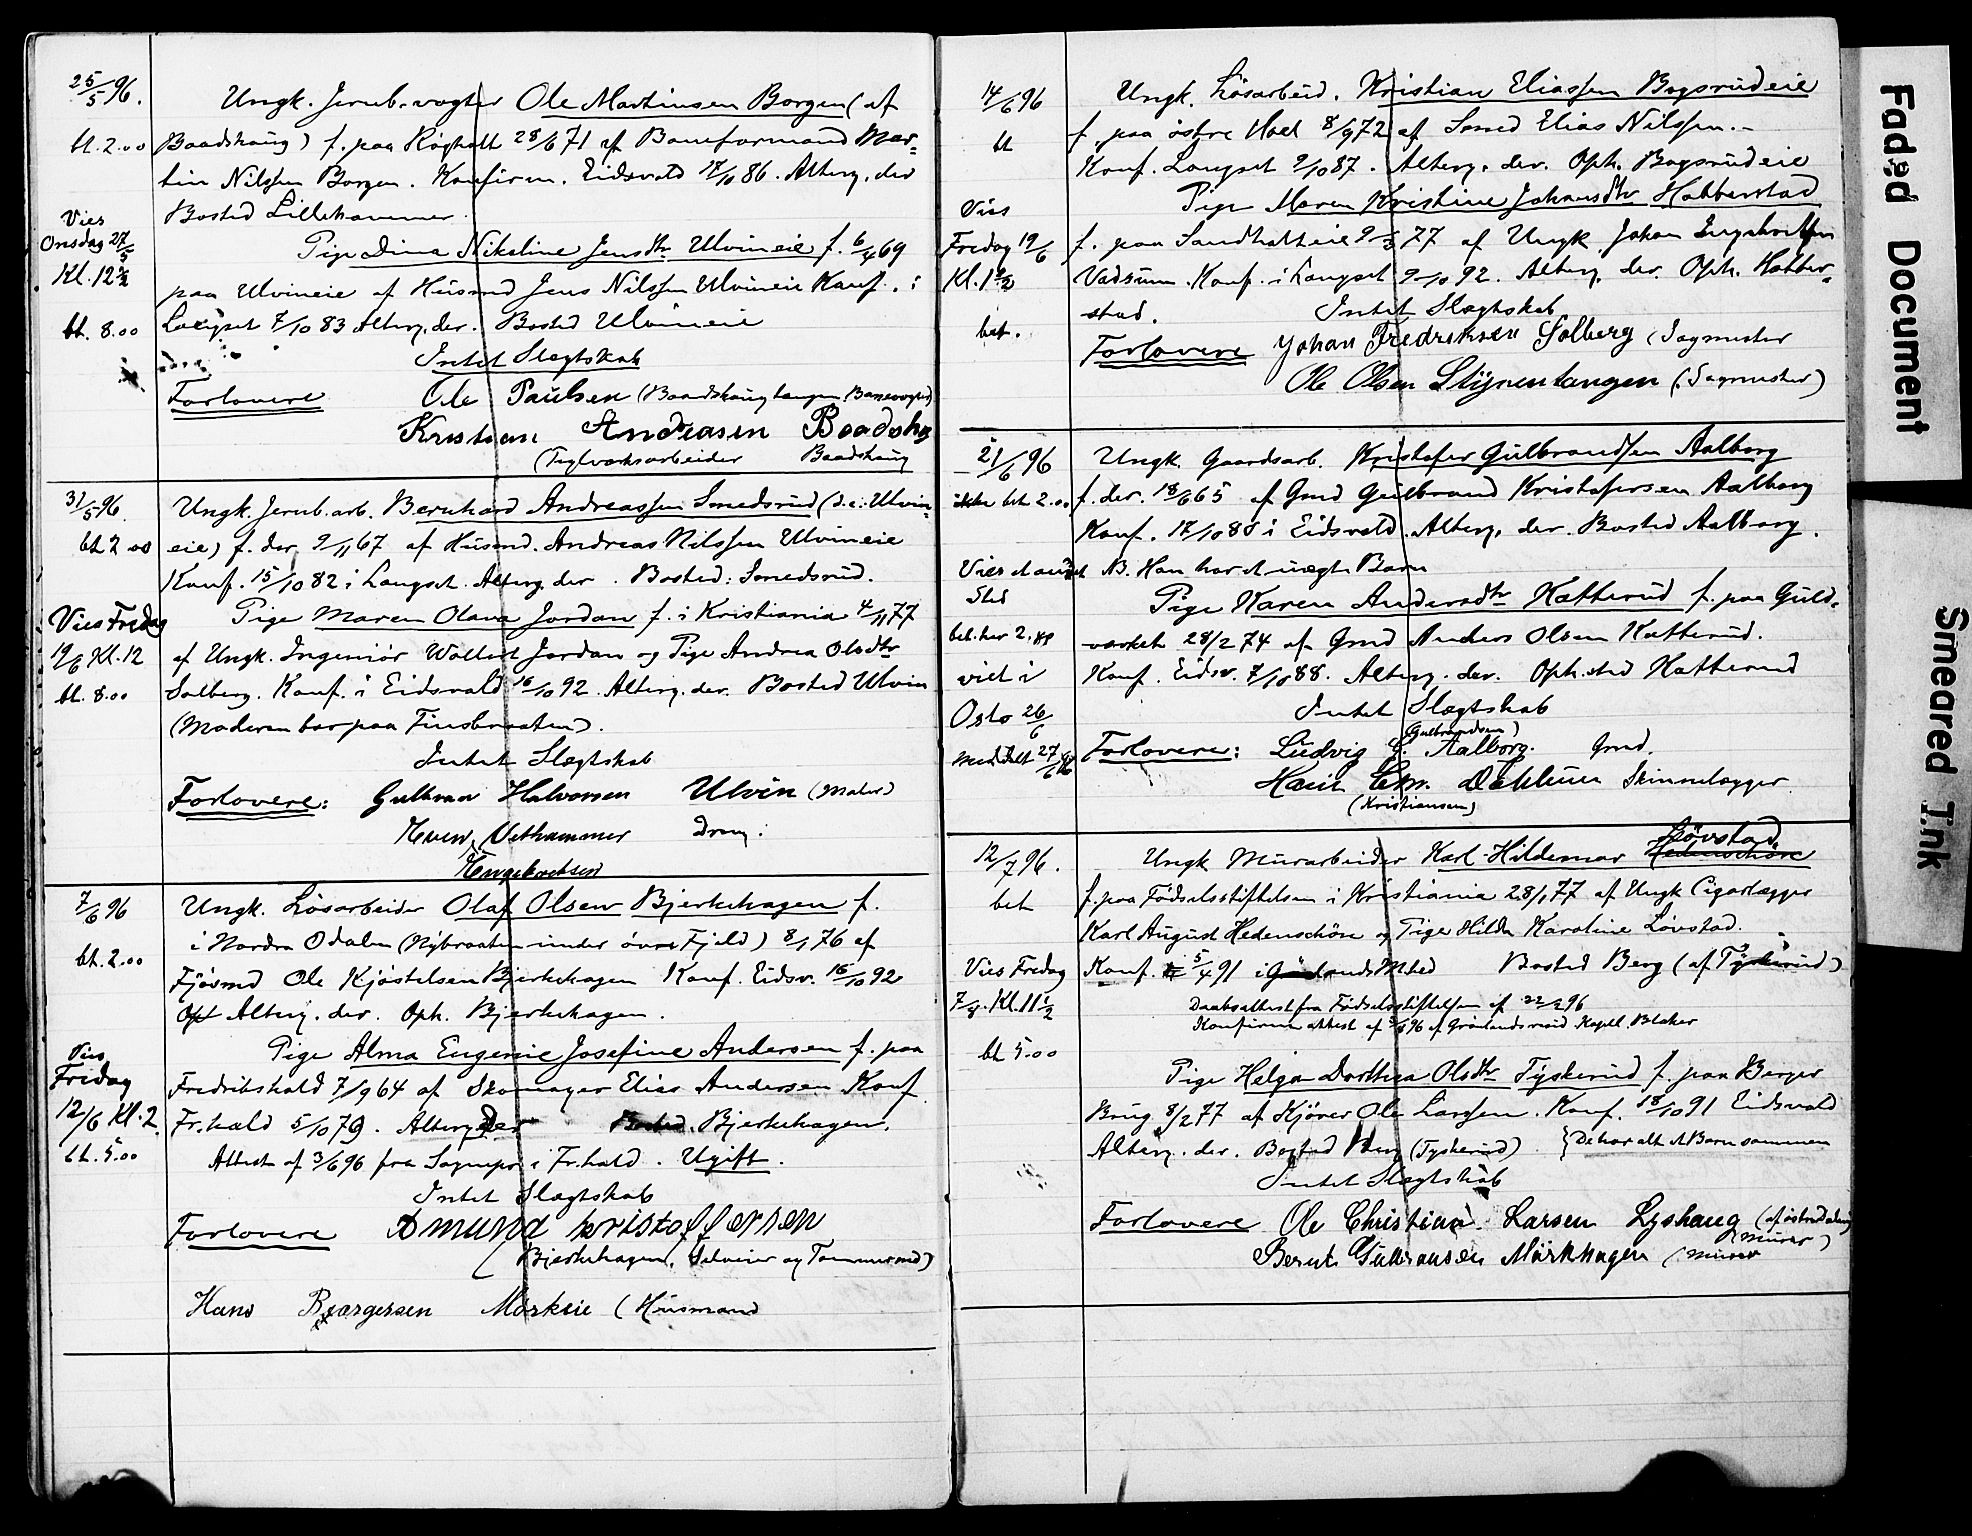 25/5 96.
Ungk. Jernb.vogter Ole Martinsen Borgen (af
bt. 2.00 Baadshaug) f. paa Røgholt 28/6 71 af Baneformand Mar-
tin Nilssen Borgen. Konfirm. Eidsvold 17/10 86. Alterg. der
Bosted Lillehammer.
Vies
Onsdag 27/5
Kl. 12 1/2
Pige Dina Nikoline Jensdtr Ulvineie f. 6/4 69
paa Ulvineie af Husmd Jens Nilssen Ulvineie Konf. i
bt. 8.00 Langset 7/10 83 Alterg. der. Bosted Ulvineie
Intet Slægtskab
Forlovere Ole Paulsen (Baadshaugtangen Banevogter)
Kristian Andreasen Baadshg
(Teglværksarbeider Baadshaug
31/5 96. Ungk. Jernb.arb. Bernhard Andreassen Smedsrud (d.e. Ulvin-
bt 2 00 eie) f. der 9/11 67 af Husmd. Andreas Nilssen Ulvineie
Konf. 15/10 82 i Langset. Alterg. der. Bosted: Smedsrud.
Vies Fredag Pige Maren Olava Jordan f. i Kristiania 4/11 77
19/6 Kl. 12 af Ungk. Ingeniør Jordan og Pige Andrea Olsdtr
bt. 8.00 Solberg. Konf. i Eidsvold 16/10 92. Alterg. der. Bosted Ulvin
(Moderen bor paa Finsbraaten).
Intet Slægtskab
Forlovere: Gulbran Halvorsen Ulvin (Maler)
Even Vethammer
Engebretsen
7/6 96 Ungk. Løsarbeider Olaf Olsen Bjerkehagen f.
i Nordre Odalen (Nybraaten under øvre Fjeld) 8/1 76 af
bt. 2.00 Fjøsmd Ole Kjøstelsen Bjerkehagen Konf. Eidsv. 16/10 92
Alterg. der. Oph. Bjerkehagen.
Vies
Fredag
12/6 Kl. 2.
bt. 5.00
Pige Alma Eugenie Josefine Andersen f. paa
Fredrikshald 7/9 64 af Skomager Elias Andersen Konf.
Fr.hald 5/10 79. Alterg. der Bosted. Bjerkehagen.
Attest af 3/6 96 fra Sognepr. i Fr.hald. Ugift.
Intet Slægtskab
Forlovere Amund Kristoffersen
(Bjerkehagen, Selveier og Tømmermd)
Hans Børgersen Mørkeie (Husmand
14/6 96 Ungk. Løsarbeid. Kristian Eliassen Bogsrudeie
bt f. paa østre Hoel 8/9 72 af Smed Elias Nilssen.-
Konf. Langset 9/10 87. Alterg. der. Oph. Bogsrudeie
Vies
Fredag 19/6
Kl. 1 1/2
bet.
Pige Maren Kristine Johansdtr Habberstad
f. paa Sandholteie 9/3 77 af Ungk. Johan Ingebretsen
Vadsum. Konf. i Langset 9/10 92. Alterg. der. Oph. Habber-
stad. Intet Slægtskab
Forlovere Johan Fredriksen Solberg (Sagmester
Ole Olsen Stigrentangen (Sagmester)
21/6 96 Ungk. Gaardsarb. Kristofer Gulbrandsen Aalborg
ikke bt 2.00 f. der. 18/6 65 af Gmd Gulbrand Kristofersen Aalborg
Konf. 17/10 80 i Eidsvold. Alterg. der. Bosted Aalborg.
Vies et andet Sted
NB. Han har et uægte Barn
Pige Karen Andersdtr Katterud f. paa Guld-
bet. her 2.
værket 28/2 74 af Gmd Anders Olsen Katterud.
viet i Konf. Eidsv. 7/10 88. Alterg. der. Oph.sted Katterud
Oslo 26/6 Intet Slægtskab
Meddelt 27/6 96
(Gulbrandsen)
Forlovere: Ludvig G. Aalborg. Gmd.
Dahlum Skinnelægger.
(Kristiansen)
12/7 96. Ungk Murarbeider Karl Hildemar Løvstad Hedenschöne
bet f. paa Fødselsstiftelsen i Kristiania 28/1 77 af Ungk Cigarlægger
Karl August Hedenschöne og Pige Hilda Karoline Løvstad.
Vies Fredag
7/8. Kl. 11 1/2
bt 5.00
Konf. 5/4 91 i Grønlands Mhed Bosted Berg (af Tyskerud)
Daabsattest fra Fødselsstiftelsen af 22/2 96
Konfirm attest af 5/6 96 af Grønlands resid Kapell. Blaker
Pige Helga Dorthea Olsdtr Tyskerud f. paa Berger
Brug 8/2 77 af Kjører Ole Larssen. Konf. 18/10 91 Eidsvold
Alterg. der. Bosted Berg (Tyskerud) { De har alt et Barn sammen
Intet Slægtskab
Forlovere Ole Christian Larsen Lyshaug (
Murer)
Bernt Gulbransen Mørkhagen (Murer
Faded Document
Smeared Ink